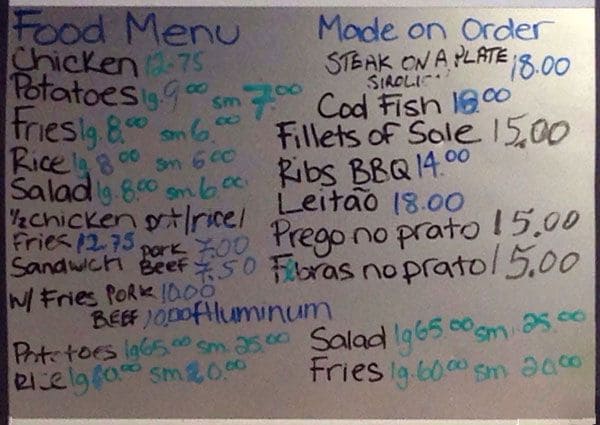 Food Menu
Chicken 12.75
Potatoes lg. 9.00 sm 7.00
Fries lg. 8.00 sm 6.00
Rice lg 8.00 sm 6.00
Salad lg. 8.00 sm 6.00
1/2 chicken pot/rice/
Fries 12.75
Sandwich pork 7.00
Beef 7.50
w/ Fries PORK 10.00
BEEF 10.00
Aluminum
Potatoes lg 65.00 sm. 25.00
Rice lg 60.00 sm 20.00
Made on Order
STEAK ON A PLATE 18.00
Cod Fish 18.00
Fillets of Sole 15.00
Ribs BBQ 14.00
Leitão 18.00
Prego no prato 15.00
Febras no prato 15.00
Salad lg 65.00 sm. 25.00
Fries lg. 60.00 sm 20.00